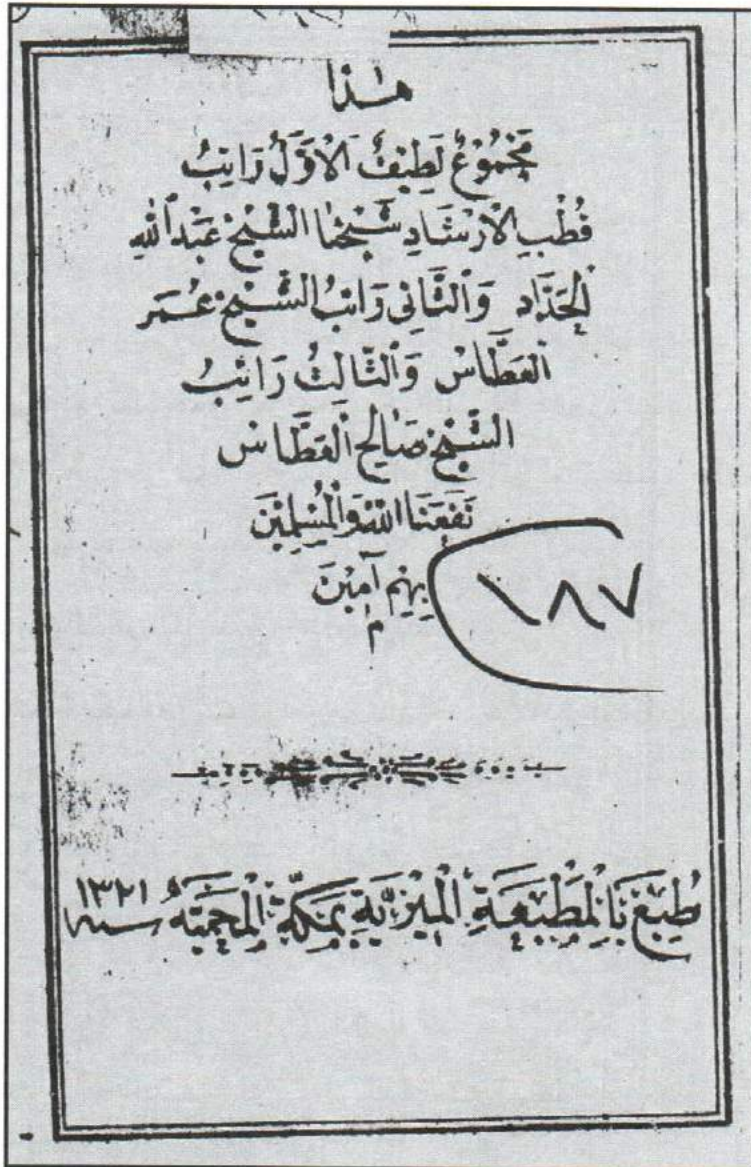 هٰذا
مَجْمُوْعٌ لَطِيْفٌ الْاَوَّلُ رَاتِبُ
قُطْبِ الْاِرْشَادِ شَيْخِنَا الشَّيْخِ عَبْدِ اللهِ
الْحَدَّادِ وَالثَّانِي رَاتِبُ الشَّيْخِ عُمَر
الْعَطَّاسْ وَالثَّالِثُ رَاتِبُ
الشَّيْخِ صَالِحِ الْعَطَّاسْ
نَفَعَنَا اللهُ وَالْمُسْلِمِيْنَ
بِهِمْ آمِيْنَ
م
١٨٧
طُبِعَ بَالْمَطْبَعَةِ الْمِيْرِيَّةِ بِمَكَّةَ الْمَحْمِيَّةُ سنه ١٣٢١